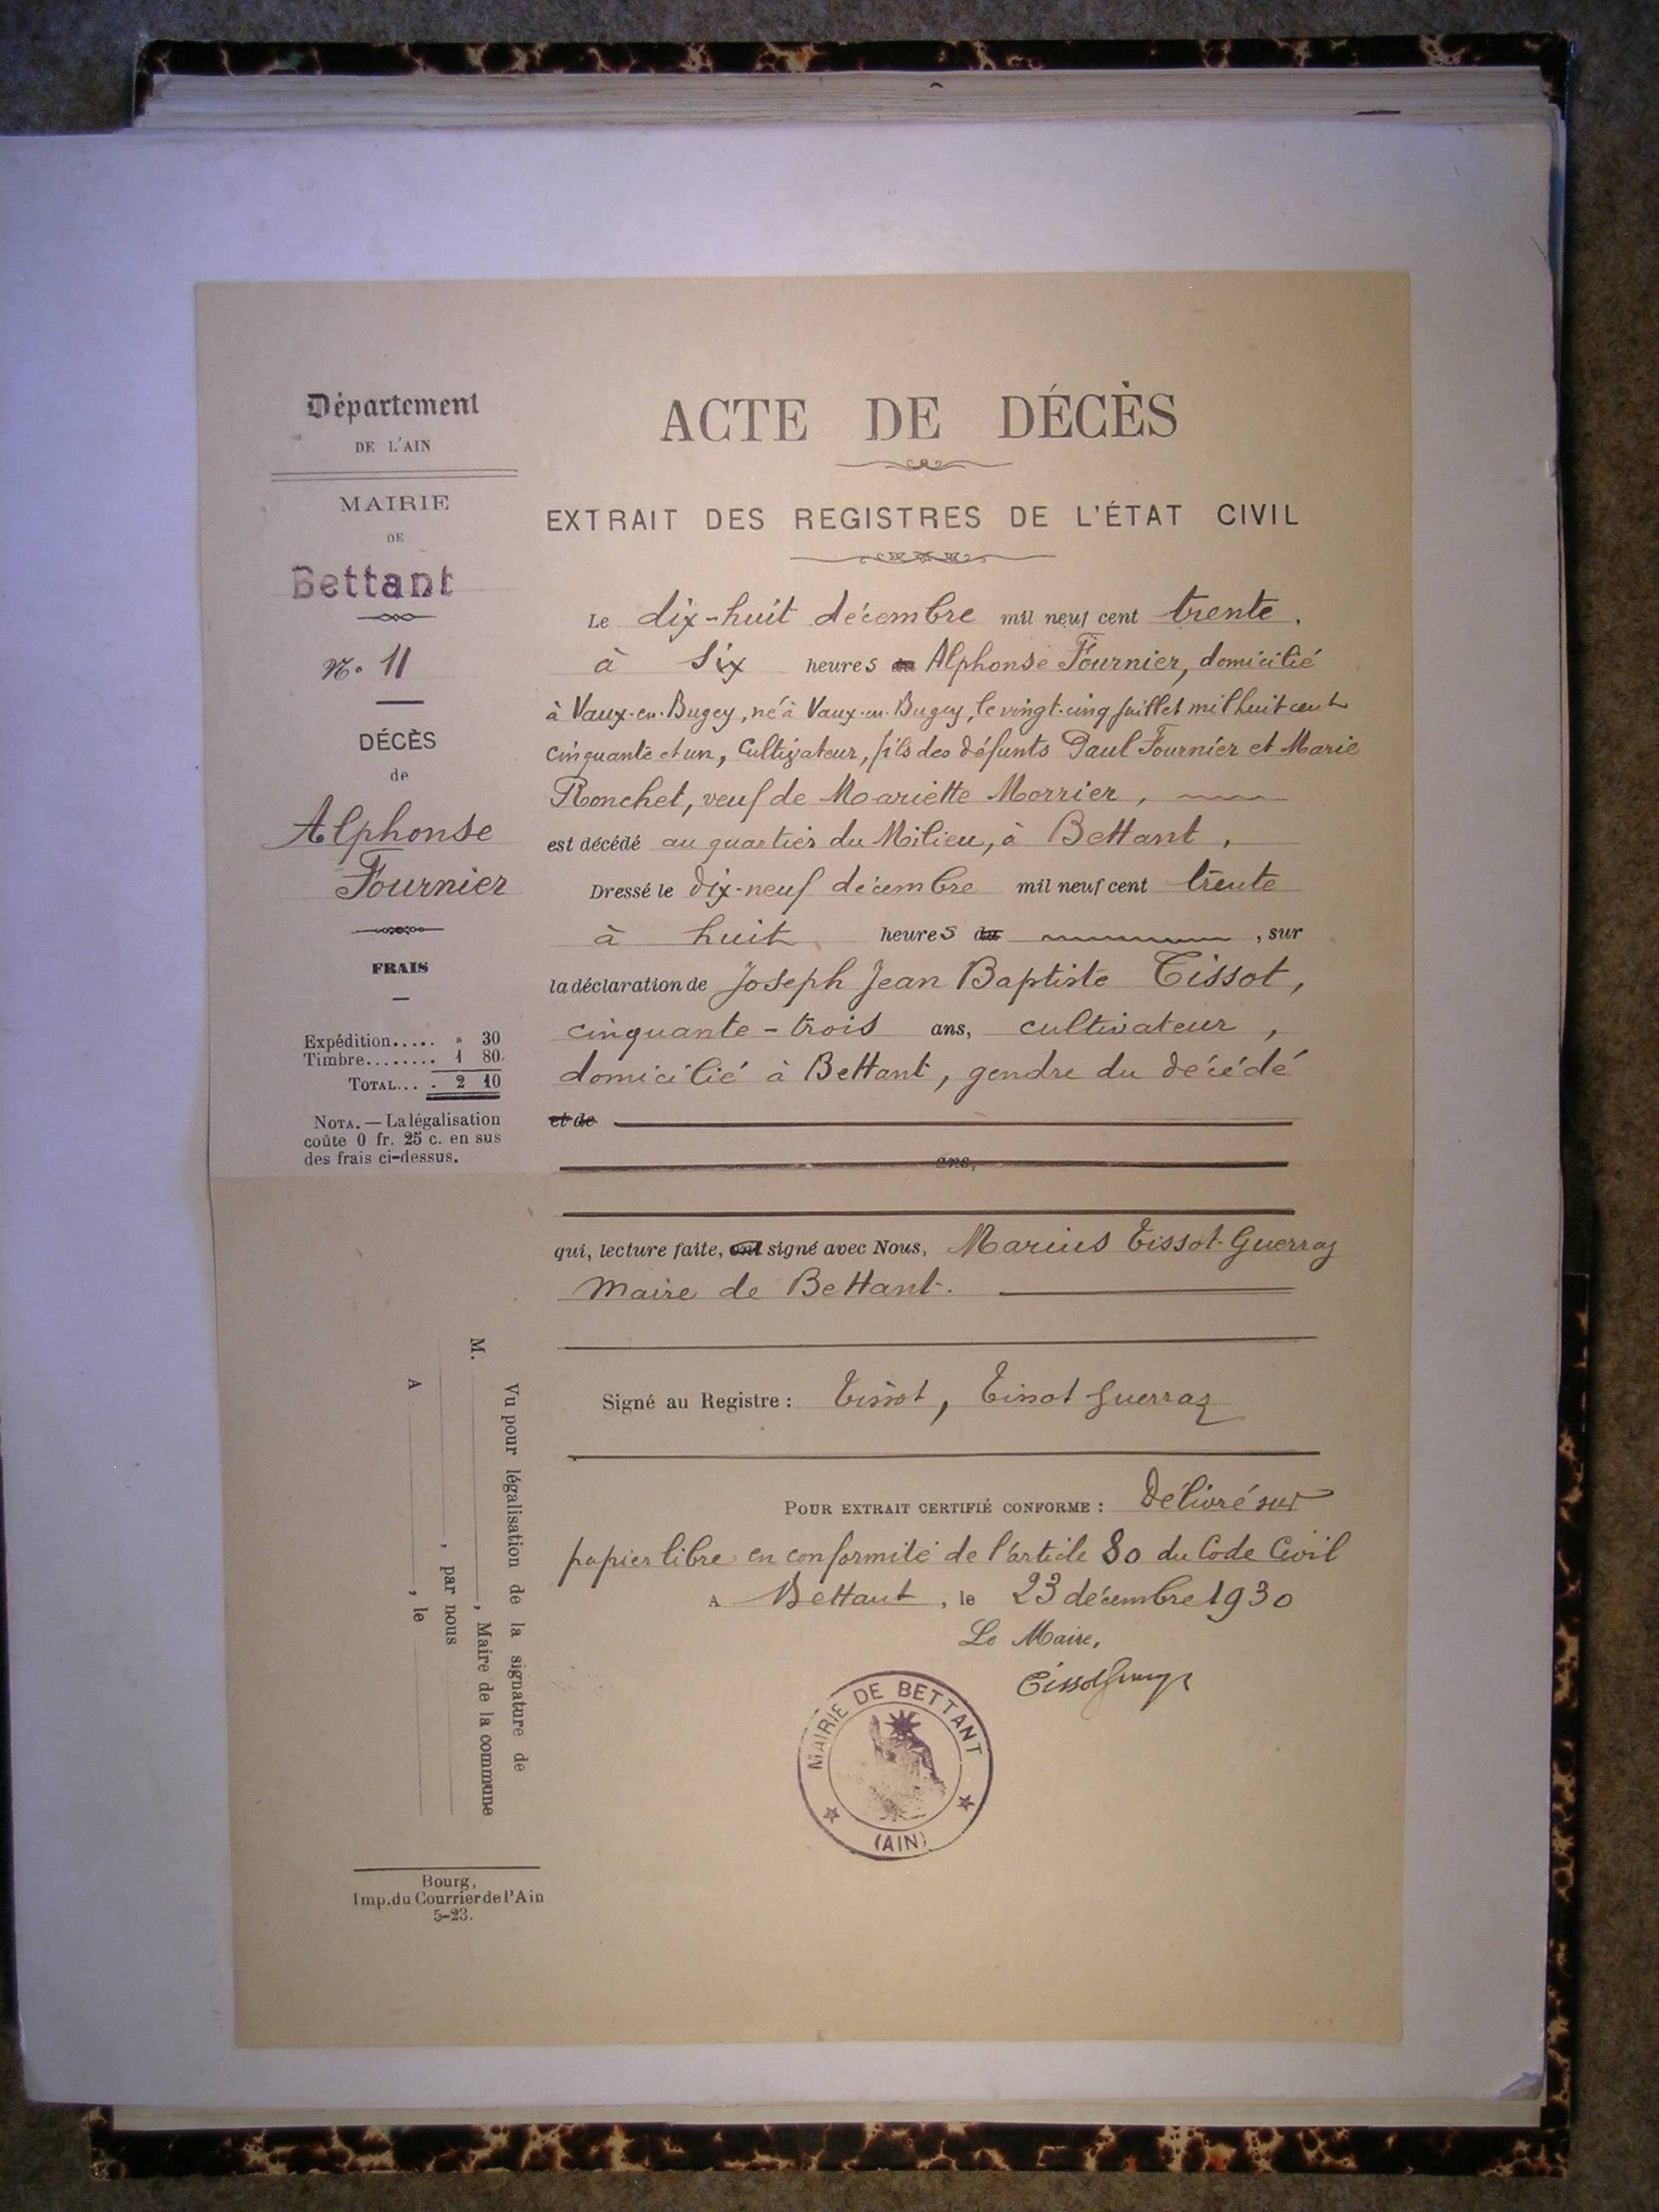 Département
DE L'AIN
MAIRIE
DE
Bettant
N° 11
DÉCÈS
de
Alphonse
Fournier
FRAIS
Expédition..... » 30
Timbre........ 1 80
TOTAL... . 2 10
NOTA. — La légalisation
coûte 0 fr. 25 c. en sus
des frais ci-dessus.
ACTE DE DÉCÈS
EXTRAIT DES REGISTRES DE L'ÉTAT CIVIL
Le dix-huit décembre mil neuf cent trente,
à six heures du Alphonse Fournier, domicilié
à Vaux-en-Bugey, né à Vaux-en-Bugey, le vingt-cinq juillet mil huit cent
cinquante et un, Cultivateur, fils des défunts Paul Fournier et Marie
Ronchet, veuf de Mariette Morrier,
est décédé au quartier du Milieu, à Bettant,
Dressé le dix-neuf décembre mil neuf cent trente
à huit heures du , sur
la déclaration de Joseph Jean Baptiste Tissot,
cinquante-trois ans, cultivateur,
domicilié à Bettant, gendre du décédé
et de
ans,
qui, lecture faite, ont signé avec Nous, Marius Tissot-Guerraz
Maire de Bettant.
Signé au Registre : Tissot, Tissot Guerraz
POUR EXTRAIT CERTIFIÉ CONFORME : Délivré sur
papier libre en conformité de l'article 80 du Code Civil
A Bettant, le 23 décembre 1930
Le Maire,
TissotGuerraz
MAIRIE DE BETTANT
(AIN)
Vu pour légalisation de la signature de
M. , Maire de la commune
, par nous
A , le
Bourg,
Imp. du Courrier de l'Ain
5-23.